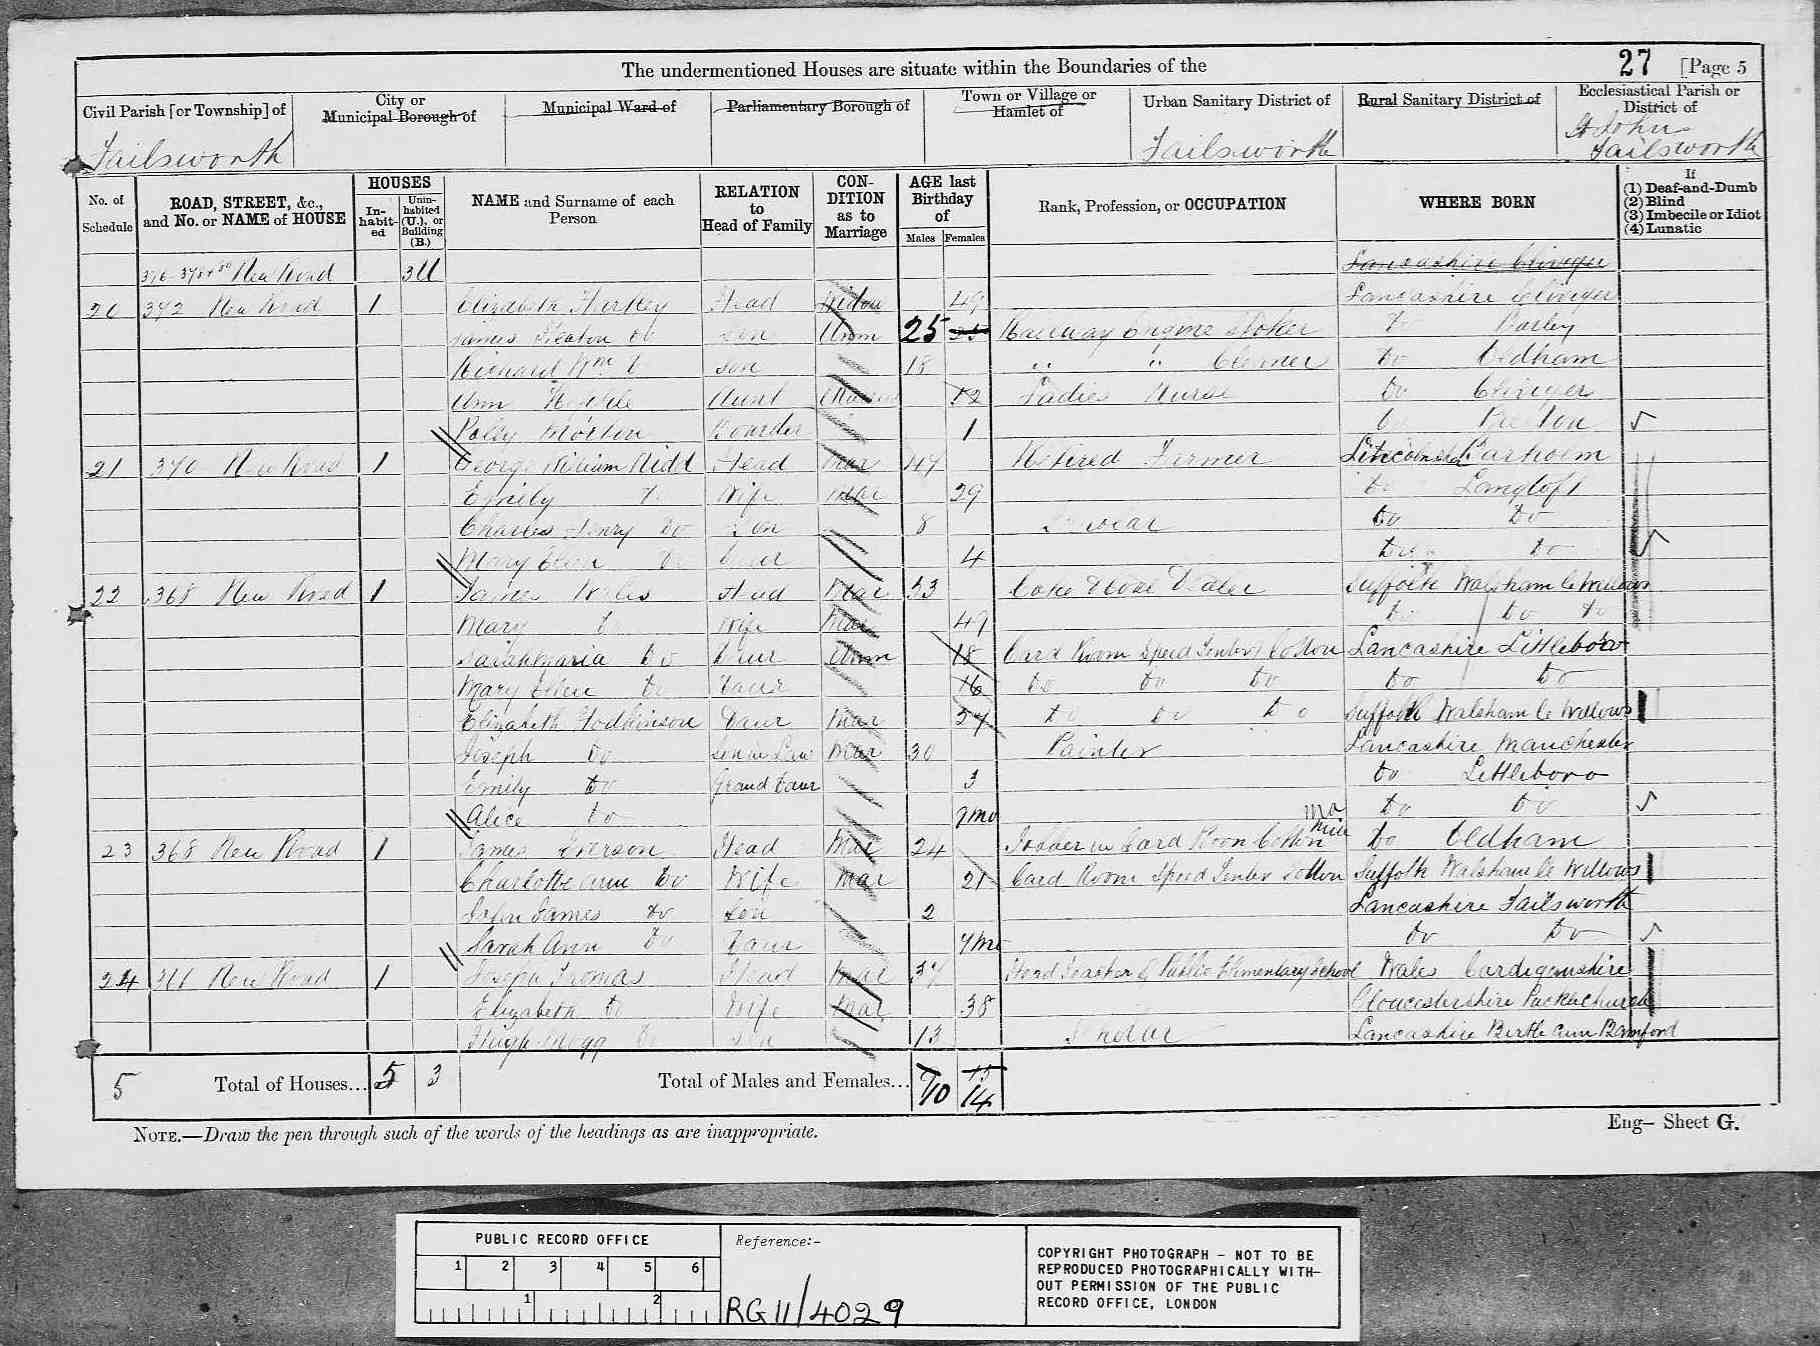 The undermentioned Houses are situate within the Boundaries of the 27 [Page 5
Civil Parish [or Township] of
City or Municipal Borough of
Municipal Ward of
Parliamentary Borough of
Town or Village or Hamlet of
Urban Sanitary District of
Rural Sanitary District of
Ecclesiastical Parish or District of
Failsworth Failsworth St John Failsworth
No. of Schedule
ROAD, STREET, &c., and No. or NAME of HOUSE
HOUSES
In-habit-ed
Unin-habited (U.), or Building (B.)
NAME and Surname of each Person
RELATION to Head of Family
CON-DITION as to Marriage
AGE last Birthday of
Males Females
Rank, Profession, or OCCUPATION
WHERE BORN
If
(1) Deaf-and-Dumb
(2) Blind
(3) Imbecile or Idiot
(4) Lunatic
New Road 3U Lancashire Cliviger
20 372 New Road 1 Elizabeth Head Widow 49 Lancashire Cliviger
James do son Unm 25 Railway Engine Stoker do Barley
Richard Wm son 18 " " Cleaner do Oldham
Ann Aunt 72 Ladies Nurse do Cliviger
Polly Morton Boarder 1 do ✓
21 370 New Road 1 George William Midd Head Mar 47 Retired Farmer Barholm
Emily do Wife Mar 29 do Langtoft
Charles Henry do Son 8 Scholar do do
Mary Ellen do Daur 4 do do ✓
22 368 New Road 1 James Head Mar 53 Coke & Coal Dealer Suffolk Walsham le Willows
Mary do Wife Mar 49 do do do
Sarah Maria do Daur Unm 18 Card Room Speed Tenter Cotton Lancashire Littleboro
Mary Ellen do Daur 16 do do do do do
Elizabeth Hodkinson Daur Mar 27 do do do Suffolk Walsham le Willows
Joseph do Son in Law Mar 30 Painter Lancashire Manchester
Emily do Grand Daur 3 do Littleboro
Alice do mo do do ✓
23 368 New Road 1 James Head Mar 24 Card Room Cotton Mill do Oldham
Charlotte Ann do Wife Mar 21 Card Room Speed Tenter Cotton Suffolk Walsham le Willows
John James do Son 2 Lancashire Failsworth
Sarah Ann do Daur do do ✓
24 New Road 1 Joseph Thomas Head Mar 37 Head Teacher of Public Elementary School Wales Cardiganshire
Elizabeth do Wife Mar 38 Gloucestershire Pucklechurch
Hugh do Son 13 Scholar Lancashire Birtle cum Bamford
5 Total of Houses... 5 3 Total of Males and Females... 10 15 14
NOTE.—Draw the pen through such of the words of the headings as are inappropriate.
Eng– Sheet G.
PUBLIC RECORD OFFICE
1 2 3 4 5 6
1 2
Reference:-
RG 11/4029
COPYRIGHT PHOTOGRAPH – NOT TO BE
REPRODUCED PHOTOGRAPHICALLY WITH-
OUT PERMISSION OF THE PUBLIC
RECORD OFFICE, LONDON